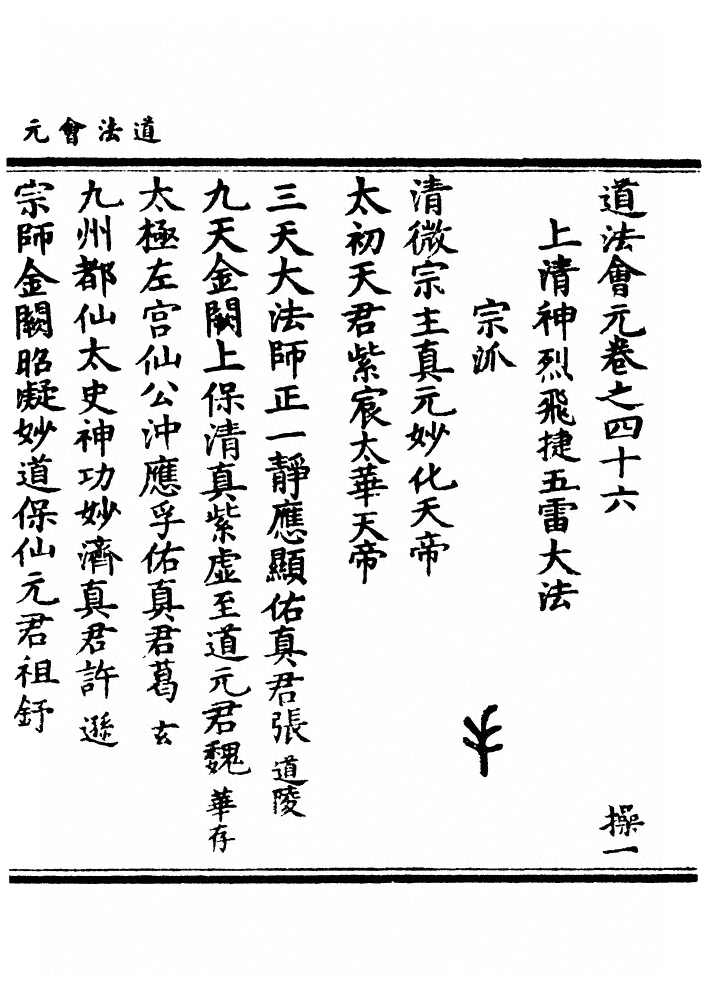 道法會元
道法會元卷之四十六 操一
上清神烈飛捷五雷大法
宗派
清微宗主真元妙化天帝
太初天君紫宸太華天帝
三天大法師正一靜應顯佑真君張道陵
九天金闕上保清真紫虛至道元君魏華存
太極左宮仙公沖應孚佑真君葛玄
九州都仙太史神功妙濟真君許遜
宗師金闕昭凝妙道保仙元君祖舒